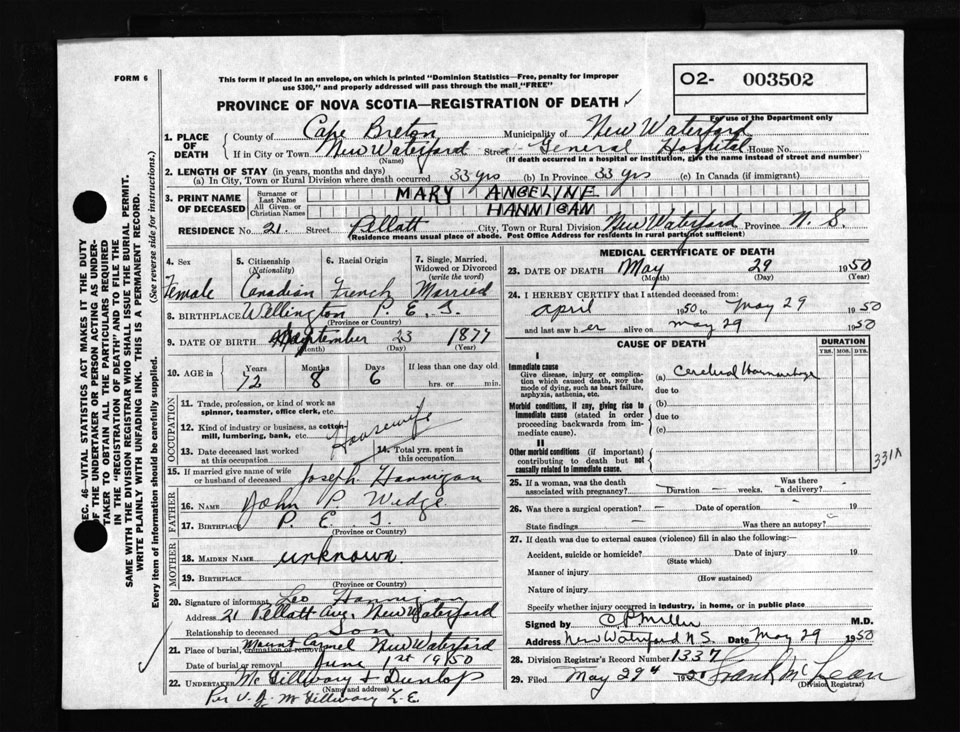 FORM 6
This form if placed in an envelope, on which is printed "Dominion Statistics—Free, penalty for improper
use $300," and properly addressed will pass through the mail "FREE"
O2- 003502
For use of the Department only
PROVINCE OF NOVA SCOTIA—REGISTRATION OF DEATH ✓
1. PLACE OF DEATH
County of Cape Breton Municipality of New Waterford
If in City or Town New Waterford Street General Hospital House No.
(Name) (If death occurred in a hospital or institution, give the name instead of street and number)
2. LENGTH OF STAY (in years, months and days)
(a) In City, Town or Rural Division where death occurred 33 yrs (b) In Province 33 yrs (c) In Canada (if immigrant)
3. PRINT NAME OF DECEASED
Surname or Last Name MARY ANGELINE
All Given or Christian Names HANNIGAN
RESIDENCE No. 21. Street Pellatt City, Town or Rural Division New Waterford Province N. S.
(Residence means usual place of abode. Post Office Address for residents in rural parts not sufficient)
4. Sex Female
5. Citizenship (Nationality) Canadian
6. Racial Origin French
7. Single, Married, Widowed or Divorced (write the word) Married
8. BIRTHPLACE Wellington P. E. I.
(Province or Country)
9. DATE OF BIRTH September 23 1877
(Month) (Day) (Year)
10. AGE in Years 72 Months 8 Days 6 If less than one day old hrs. or min.
OCCUPATION
11. Trade, profession, or kind of work as spinner, teamster, office clerk, etc.
12. Kind of industry or business, as cotton-mill, lumbering, bank, etc. Housewife
13. Date deceased last worked at this occupation
14. Total yrs. spent in this occupation
15. If married give name of wife or husband of deceased Joseph Hannigan
FATHER
16. NAME John P. Wedge
17. BIRTHPLACE P. E. I.
(Province or Country)
MOTHER
18. MAIDEN NAME unknown
19. BIRTHPLACE
(Province or Country)
20. Signature of informant Leo Hannigan
Address 21 Pellatt Ave, New Waterford
Relationship to deceased Son
21. Place of burial, cremation or removal Mount Carmel New Waterford
Date of burial or removal June 1st 1950
22. UNDERTAKER McGillivary & Dunlop
(Name and address)
Per V. J. McGillivary L. E.
MEDICAL CERTIFICATE OF DEATH
23. DATE OF DEATH May 29 1950
(Month) (Day) (Year)
24. I HEREBY CERTIFY that I attended deceased from:
April 1950 to May 29 1950
and last saw her alive on May 29 1950
CAUSE OF DEATH
DURATION
YRS. MOS. DYS.
I
Immediate cause
Give disease, injury or complication which caused death, NOT the mode of dying, such as heart failure, asphyxia, asthenia, etc.
(a) Cerebral Haemorrhage
due to
Morbid conditions, if any, giving rise to immediate cause (stated in order proceeding backwards from immediate cause).
(b)
due to
(c)
II
Other morbid conditions (if important) contributing to death but not causally related to immediate cause.
331A
25. If a woman, was the death associated with pregnancy? Duration — weeks. Was there a delivery?
26. Was there a surgical operation? — Date of operation 19
State findings — Was there an autopsy?
27. If death was due to external causes (violence) fill in also the following:—
Accident, suicide or homicide? Date of injury 19
(State which)
Manner of injury
(How sustained)
Nature of injury
Specify whether injury occurred in industry, in home, or in public place
Signed by C. P. Miller M.D.
Address New Waterford N.S. Date May 29 1950
28. Division Registrar's Record Number 1337
29. Filed May 29th 1950 Frank McLean
(Division Registrar)
SEC. 46—VITAL STATISTICS ACT MAKES IT THE DUTY
OF THE UNDERTAKER OR PERSON ACTING AS UNDER-
TAKER TO OBTAIN ALL THE PARTICULARS REQUIRED
IN THE "REGISTRATION OF DEATH" AND TO FILE THE
SAME WITH THE DIVISION REGISTRAR WHO SHALL ISSUE THE BURIAL PERMIT.
WRITE PLAINLY WITH UNFADING INK. THIS IS A PERMANENT RECORD.
Every item of information should be carefully supplied. (See reverse side for instructions.)